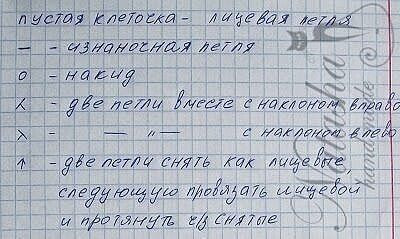 пустая клеточка - лицевая петля
— - изнаночная петля
о - накид
⋌ - две петли вместе с наклоном вправо
λ - — „ — с наклоном влево
↑ - две петли снять как лицевые
следующую провязать лицевой
и протянуть ч/з снятые
Natasha
handmade